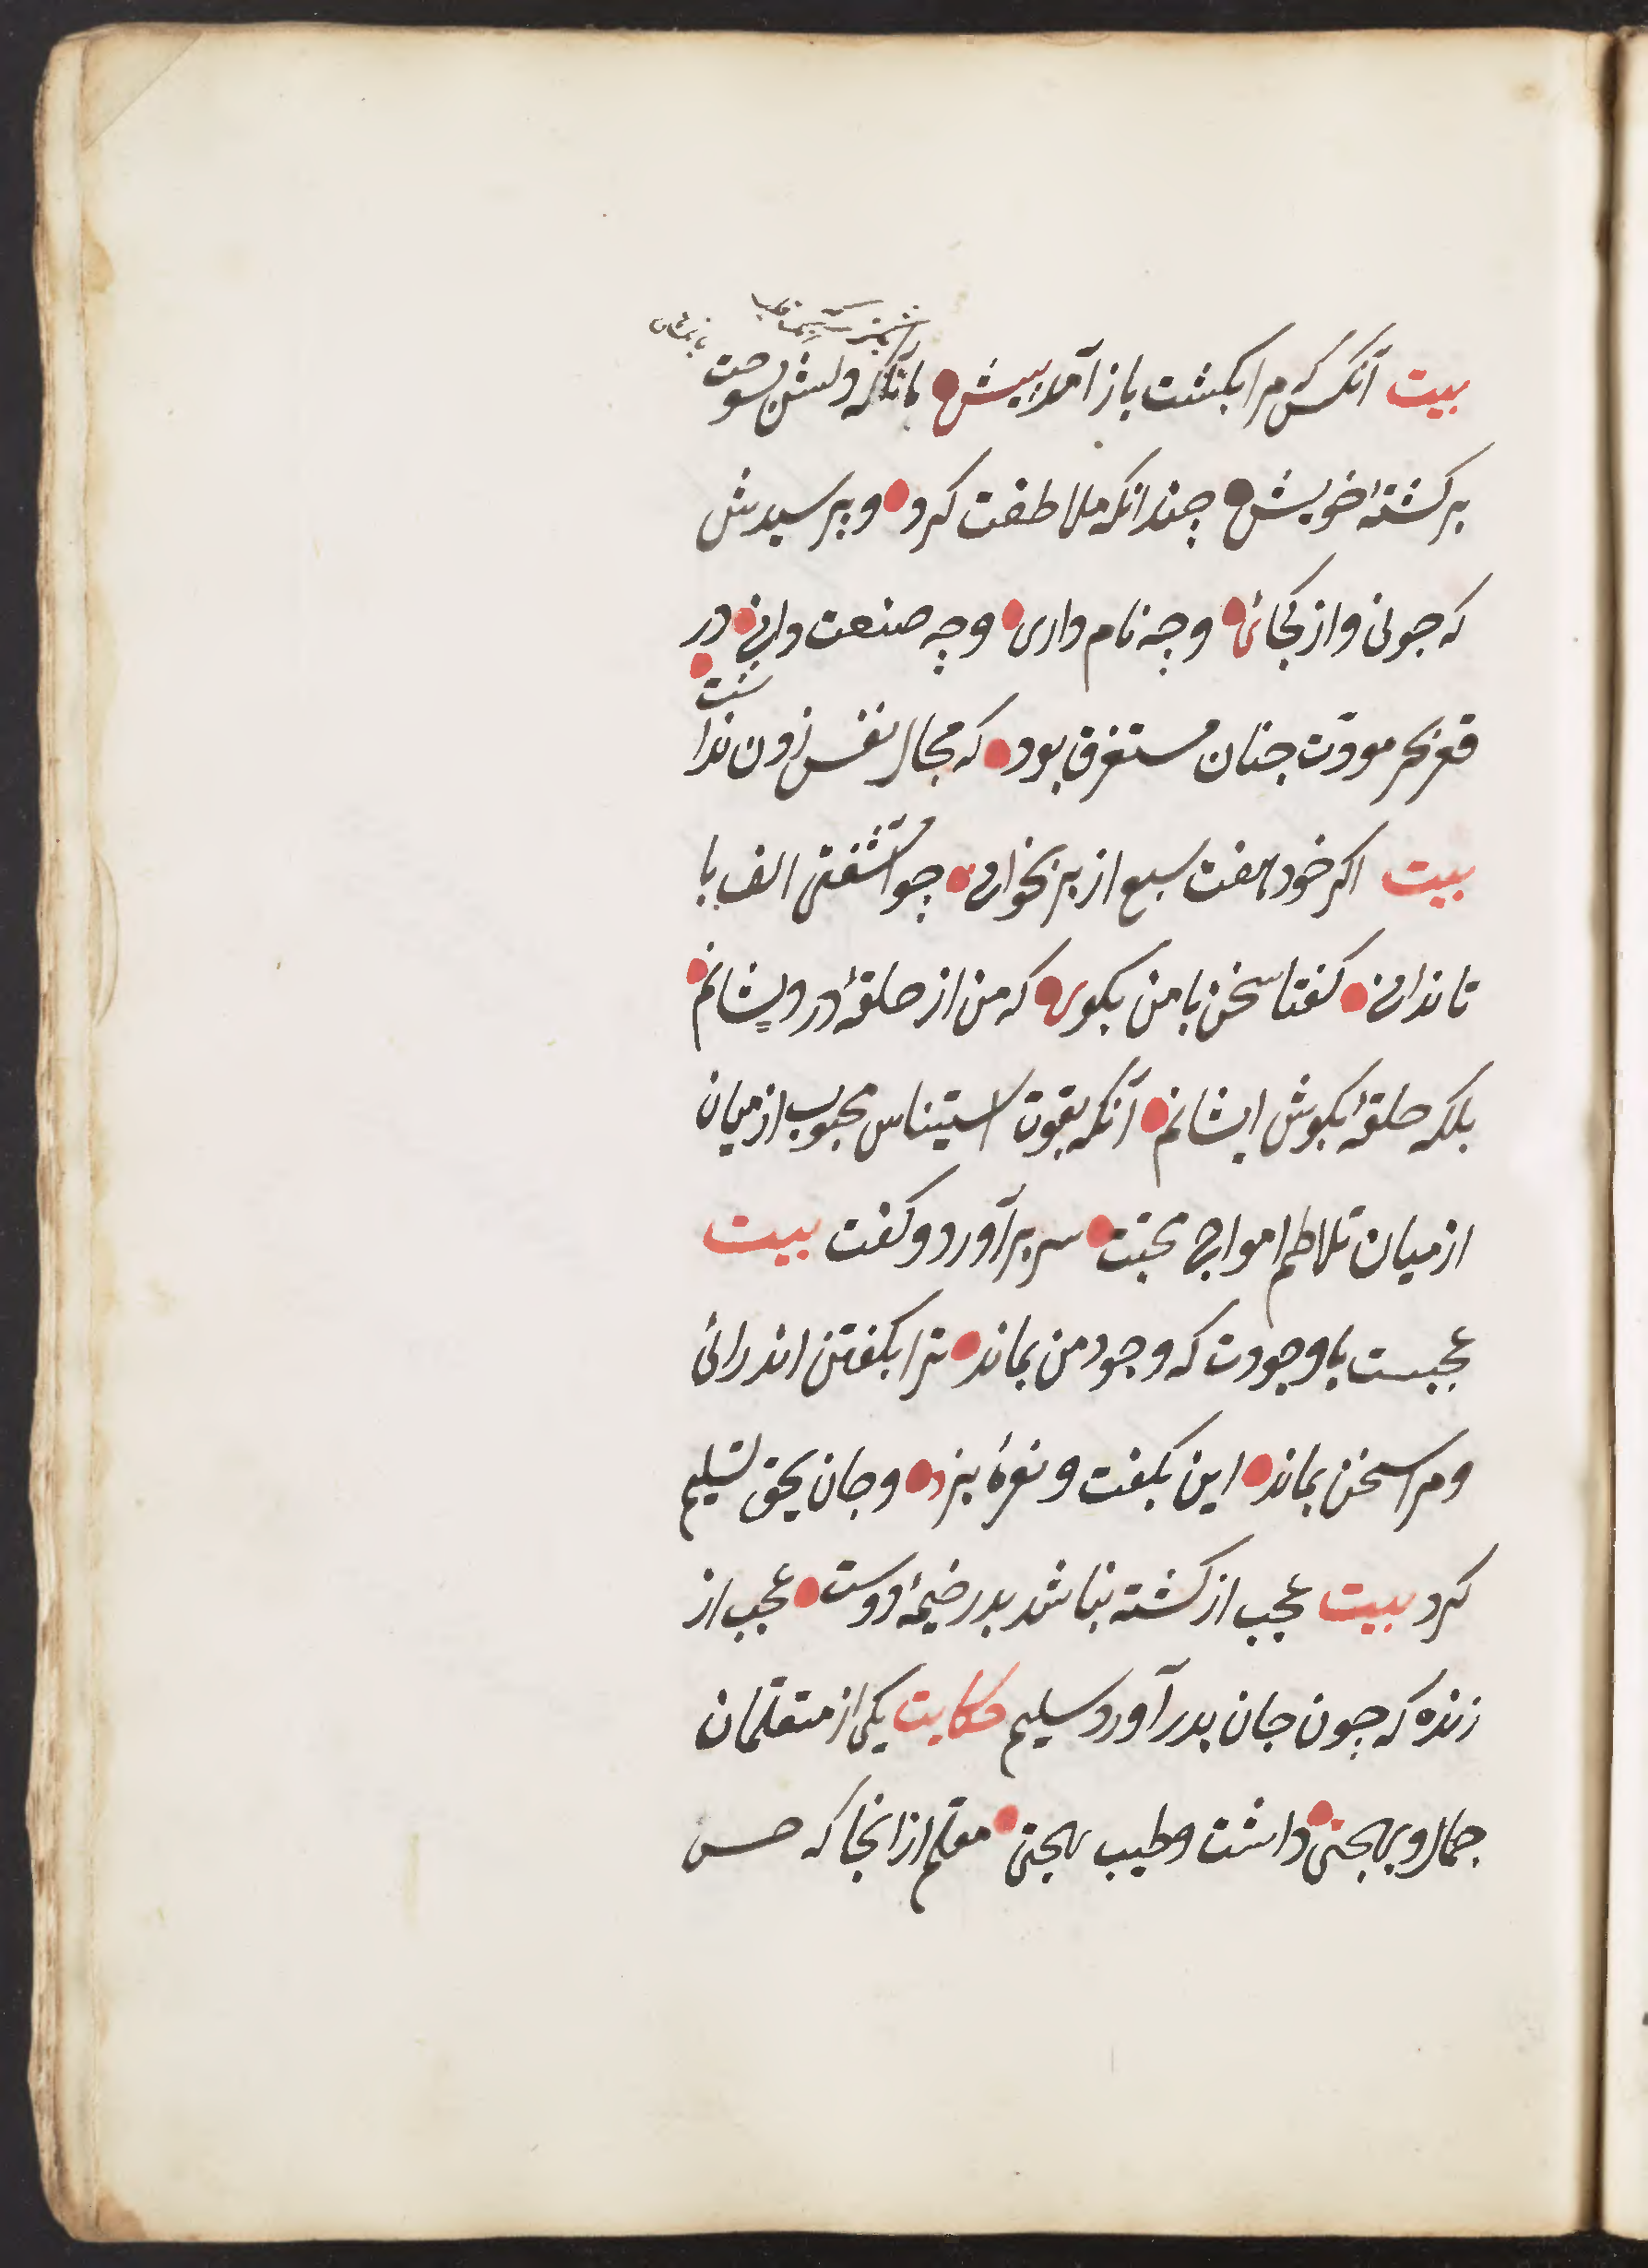 بیت آنکس که مرا بکشت باز آمد پیش مانکه دلش بسوخت
بر کشتهٔ خویش چندانکه ملاطفت کرد و پرسیدش
که چونی و از کجائی و چه نام داری و چه صنعت دانی در
قعر بحر مودّت چنان مستغرق بود که مجال نفس زدن نداشت
بیت اکر خود هفت سبع از بر بخوانی چو آشفتی الف با
تا ندانی کفتا سخن با من بکوی که من از حلقهٔ درویشانم
بلکه حلقهٔ بکوش ایشانم آنکه بقوت استیناس محبوب از میان
از میان تلاطم امواج محبّت سر بر آورد و کفت بیت
عجبست با وجودت که وجود من بماند ترا بکفتن اندر ائی
و مرا سخن بماند این بکفت و نعرهٔ بزد و جان بحق تسلیم
کرد بیت عجب از کشته نباشد بدر خیمهٔ دوست عجب از
زنده که چون جان بدر آورد سلیم حکایت یکی از متعلّمان
جمال و بهجتی داشت و طیب لهجتی معلّم از انجا که حس